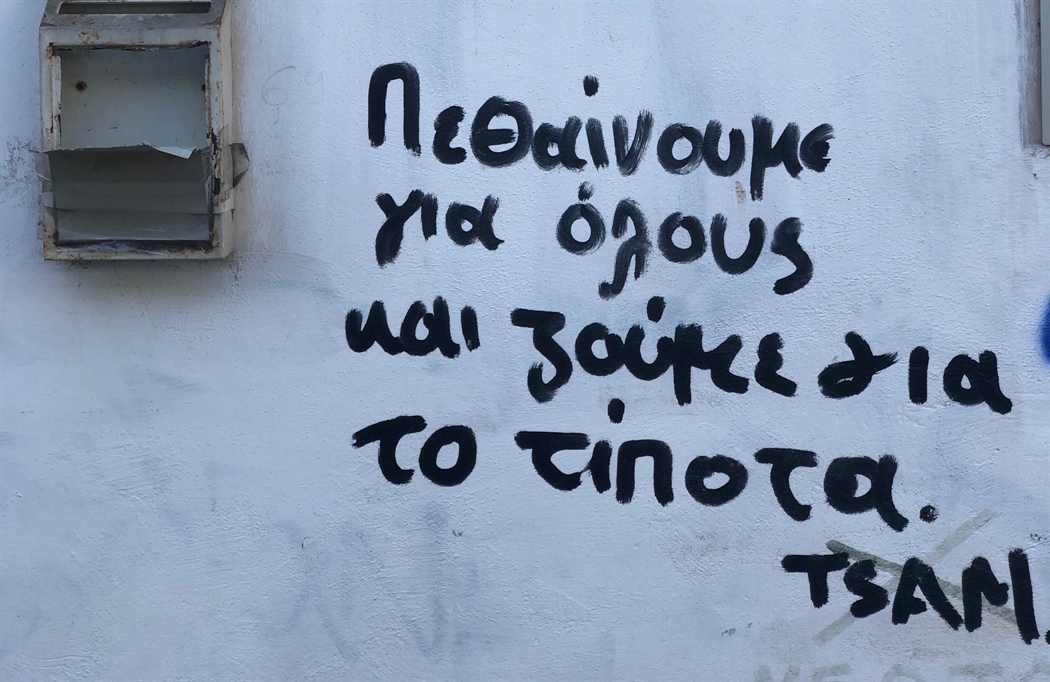 Πεθαίνουμε
για όλους
και ζούμε για
το τίποτα.
TSAM.